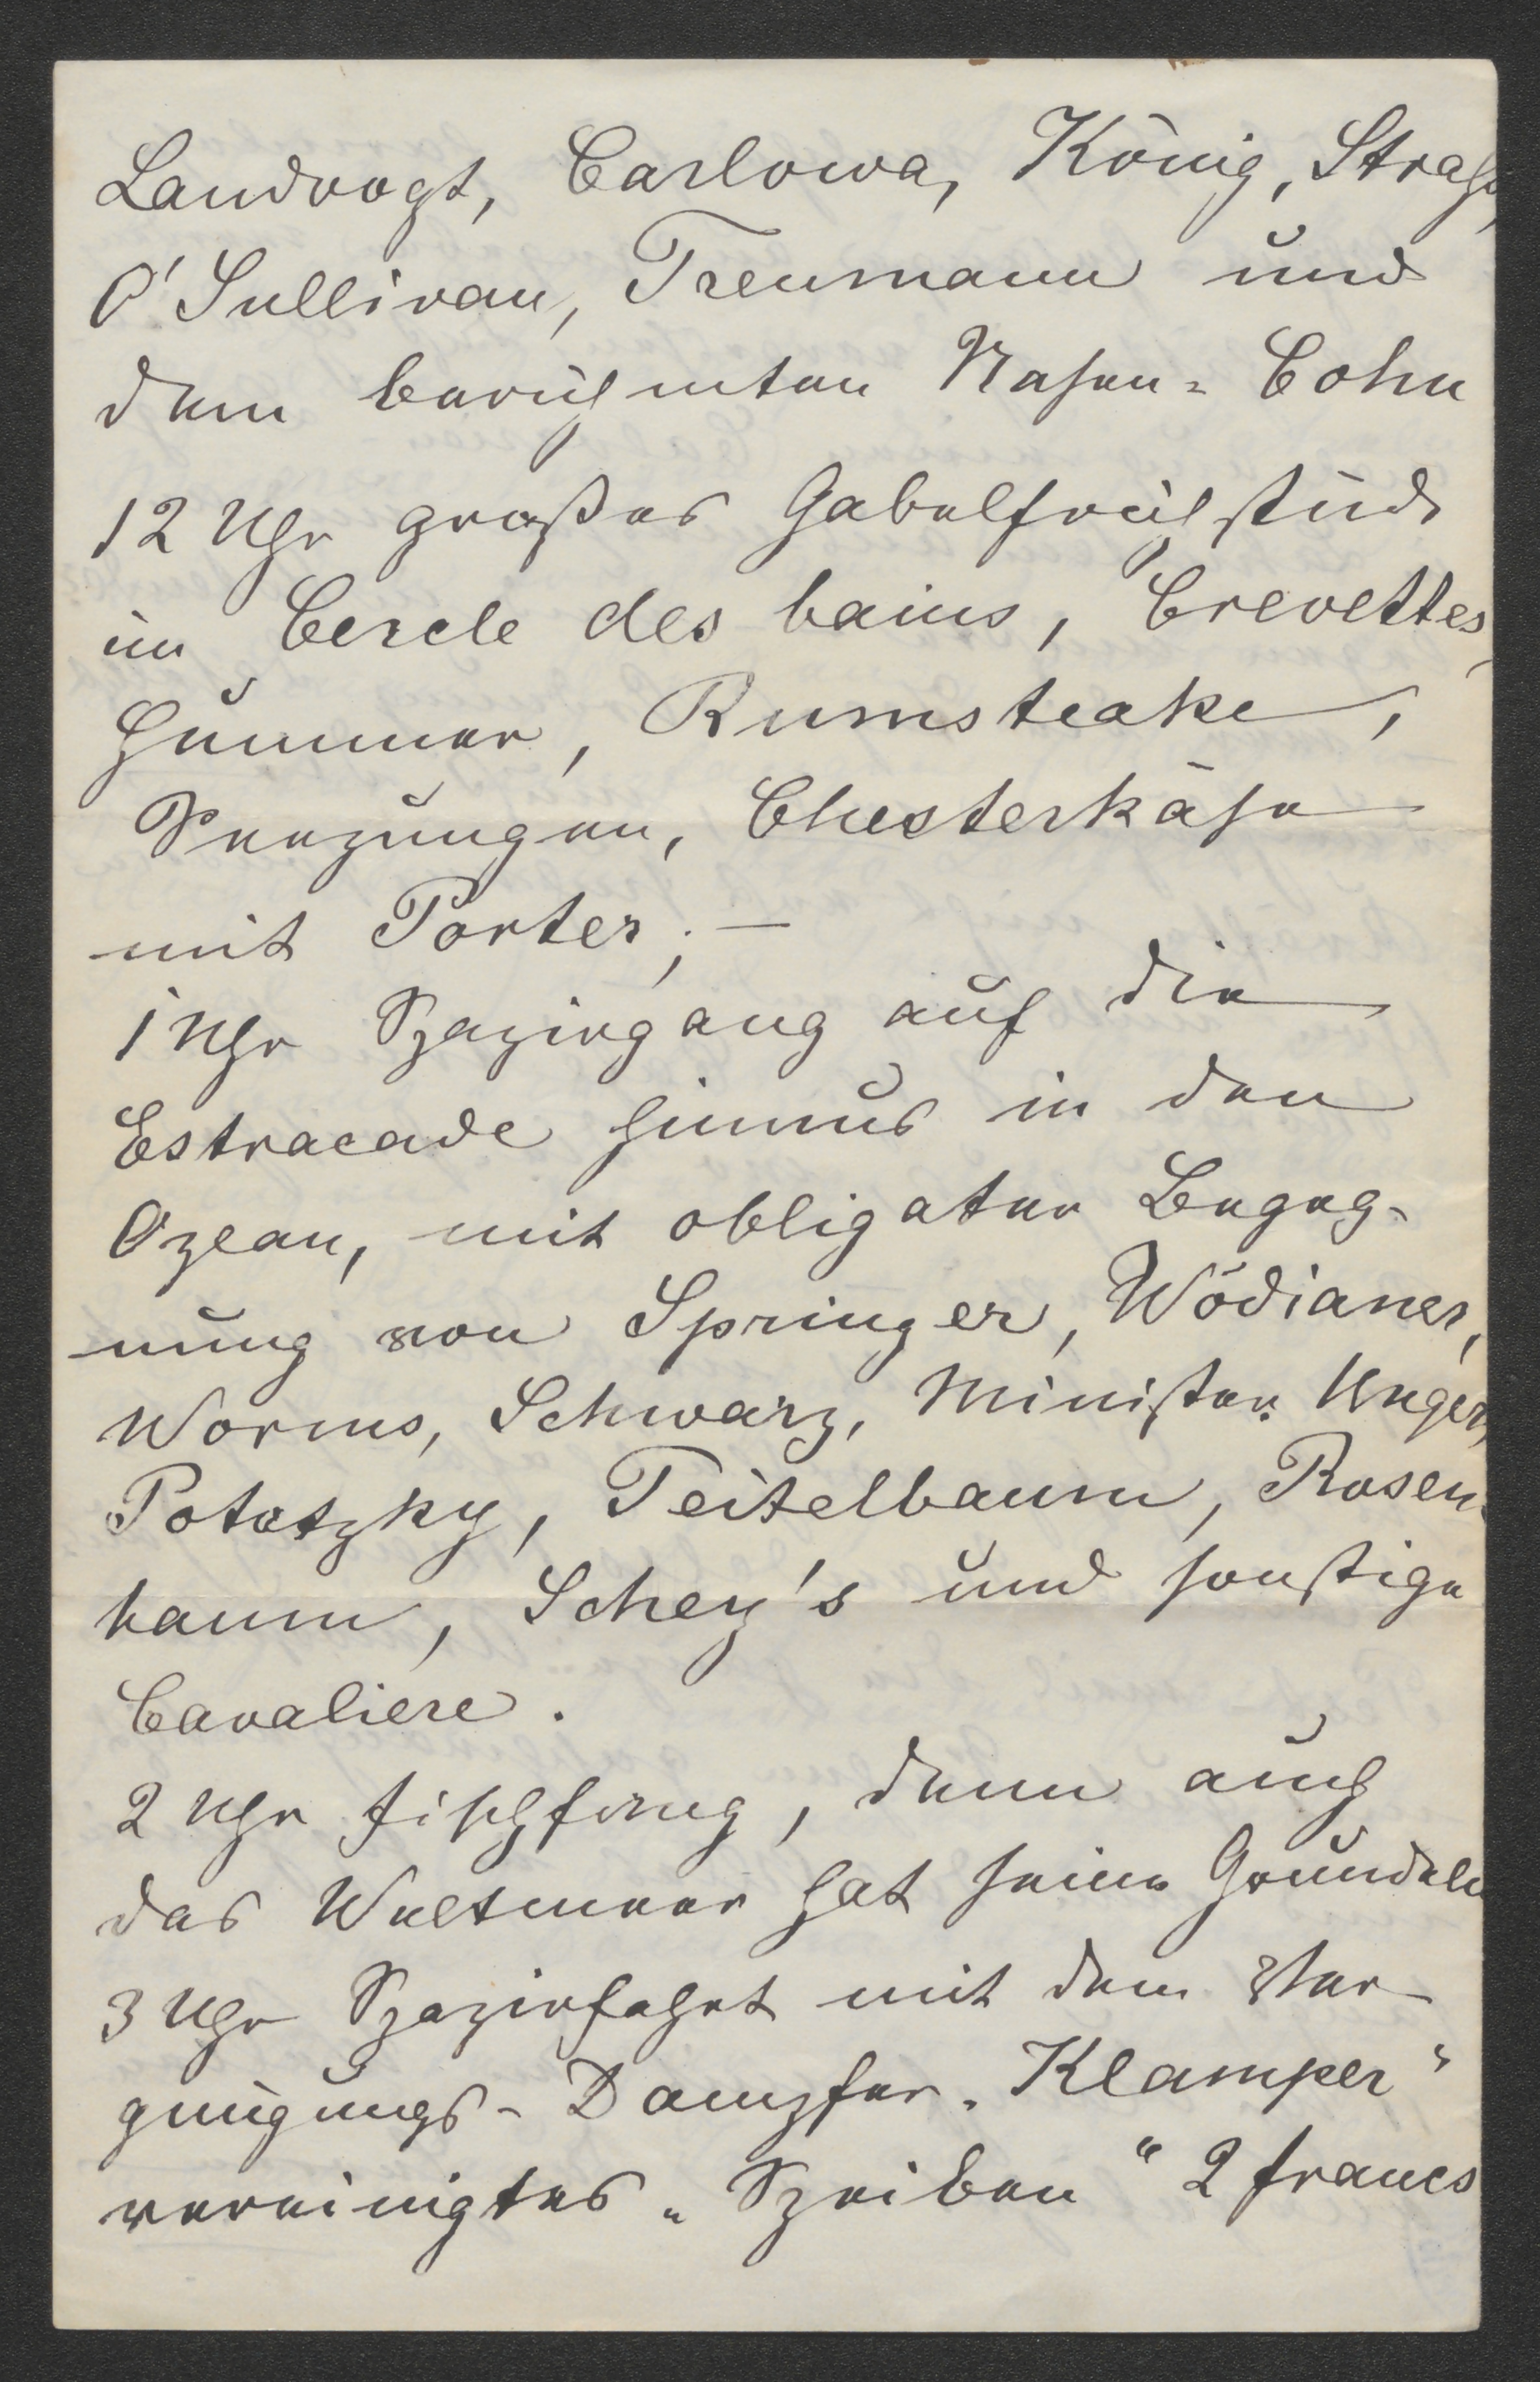 Landvogt, Carlowa, König, Straß,
O'Sullivan, Treumann und
dem berühmten Nasen-Cohn
12 Uhr großes Gabelfrühstück
im Cercle des bains, Crevettes,
Hummer, Rumsteake,
Seezungen, Chesterkäse
mit Porter; —
1 Uhr Spazirgang auf die
Estracade hinaus in den
Ozean, mit obligater Begeg-
nung von Springer, Wödianer,
Worms, Schwarz, Minister Unger,
Pototzky, Teitelbaum, Rosen-
baum, Schey's und sonstige
Cavaliere.
2 Uhr Fischfang, denn auch
das Weltmeer hat seine Grundeln
3 Uhr Spazirfahrt mit dem Ver-
gnügungs-Dampfer „Klamper“
vereinigtes „Speiben“ 2 francs